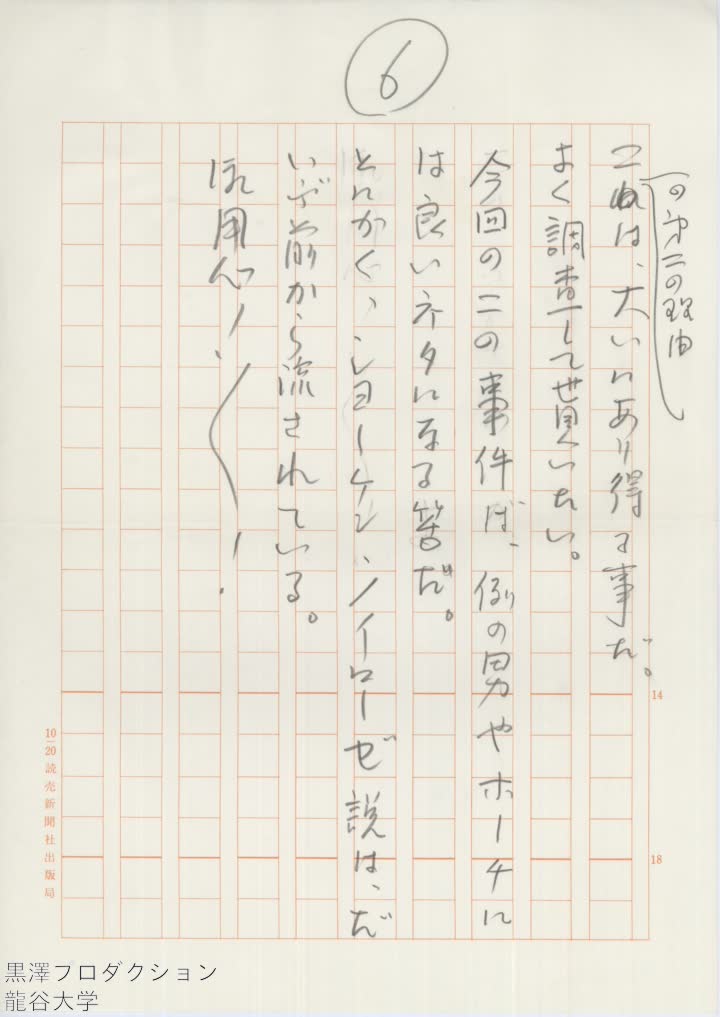 6
の第二の理由
これは、大いにあり得る事だ。
よく調査して貰いたい。
今回の二の事件は、例の男やホーチに
は良いネタになる筈だ。
とにかく、ショーケン、ノイローゼ説は、だ
いぶ前から流されている。
御用心！！
14
18
10
20
読売新聞社出版局
黒澤プロダクション
龍谷大学